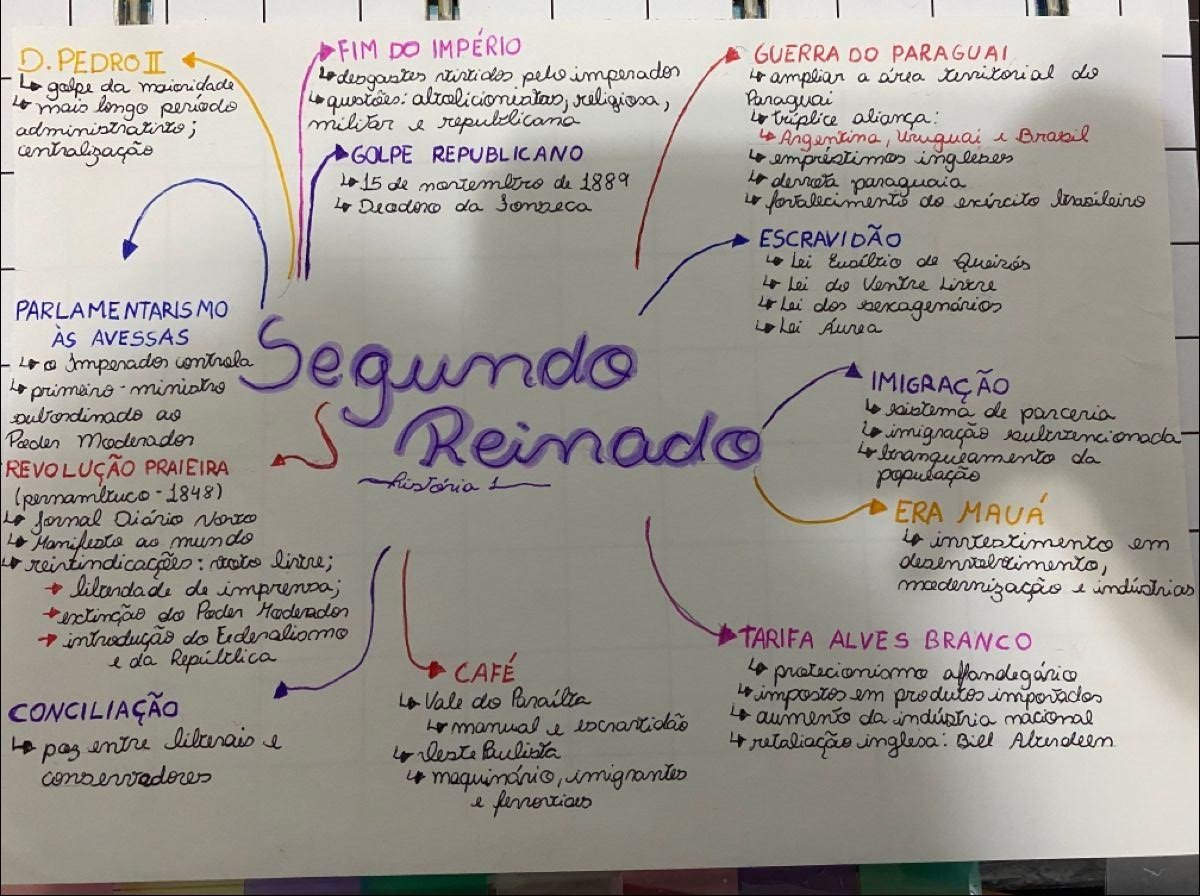 D. PEDRO II
↳ golpe da maioridade
↳ mais longo período
administrativo;
centralização
FIM DO IMPÉRIO
↳ desgastes vividos pelo imperador
↳ questões: abolicionistas, religiosa,
militar e republicana
GOLPE REPUBLICANO
↳ 15 de novembro de 1889
↳ Deodoro da Fonseca
GUERRA DO PARAGUAI
↳ ampliar a área territorial do
Paraguai
↳ tríplice aliança:
↳ Argentina, Uruguai e Brasil
↳ empréstimos ingleses
↳ derrota paraguaia
↳ fortalecimento do exército brasileiro
ESCRAVIDÃO
↳ Lei Eusébio de Queirós
↳ Lei do Ventre Livre
↳ Lei dos sexagenários
↳ Lei Áurea
PARLAMENTARISMO
ÀS AVESSAS
↳ o Imperador controla
↳ primeiro-ministro
subordinado ao
Poder Moderador
Segundo
Reinado
história 1
IMIGRAÇÃO
↳ sistema de parceria
↳ imigração subvencionada
↳ branqueamento da
população
REVOLUÇÃO PRAIEIRA
(pernambuco - 1848)
↳ Jornal Diário Novo
↳ Manifesto ao mundo
↳ reivindicações: voto livre;
→ liberdade de imprensa;
→ extinção do Poder Moderador
→ introdução do Federalismo
e da República
ERA MAUÁ
↳ investimento em
desenvolvimento,
modernização e indústrias
TARIFA ALVES BRANCO
↳ protecionismo alfandegário
↳ impostos em produtos importados
↳ aumento da indústria nacional
↳ retaliação inglesa: Bill Aberdeen
CONCILIAÇÃO
↳ paz entre liberais e
conservadores
CAFÉ
↳ Vale do Paraíba
↳ manual e escravidão
↳ Oeste Paulista
↳ maquinário, imigrantes
e ferrovias